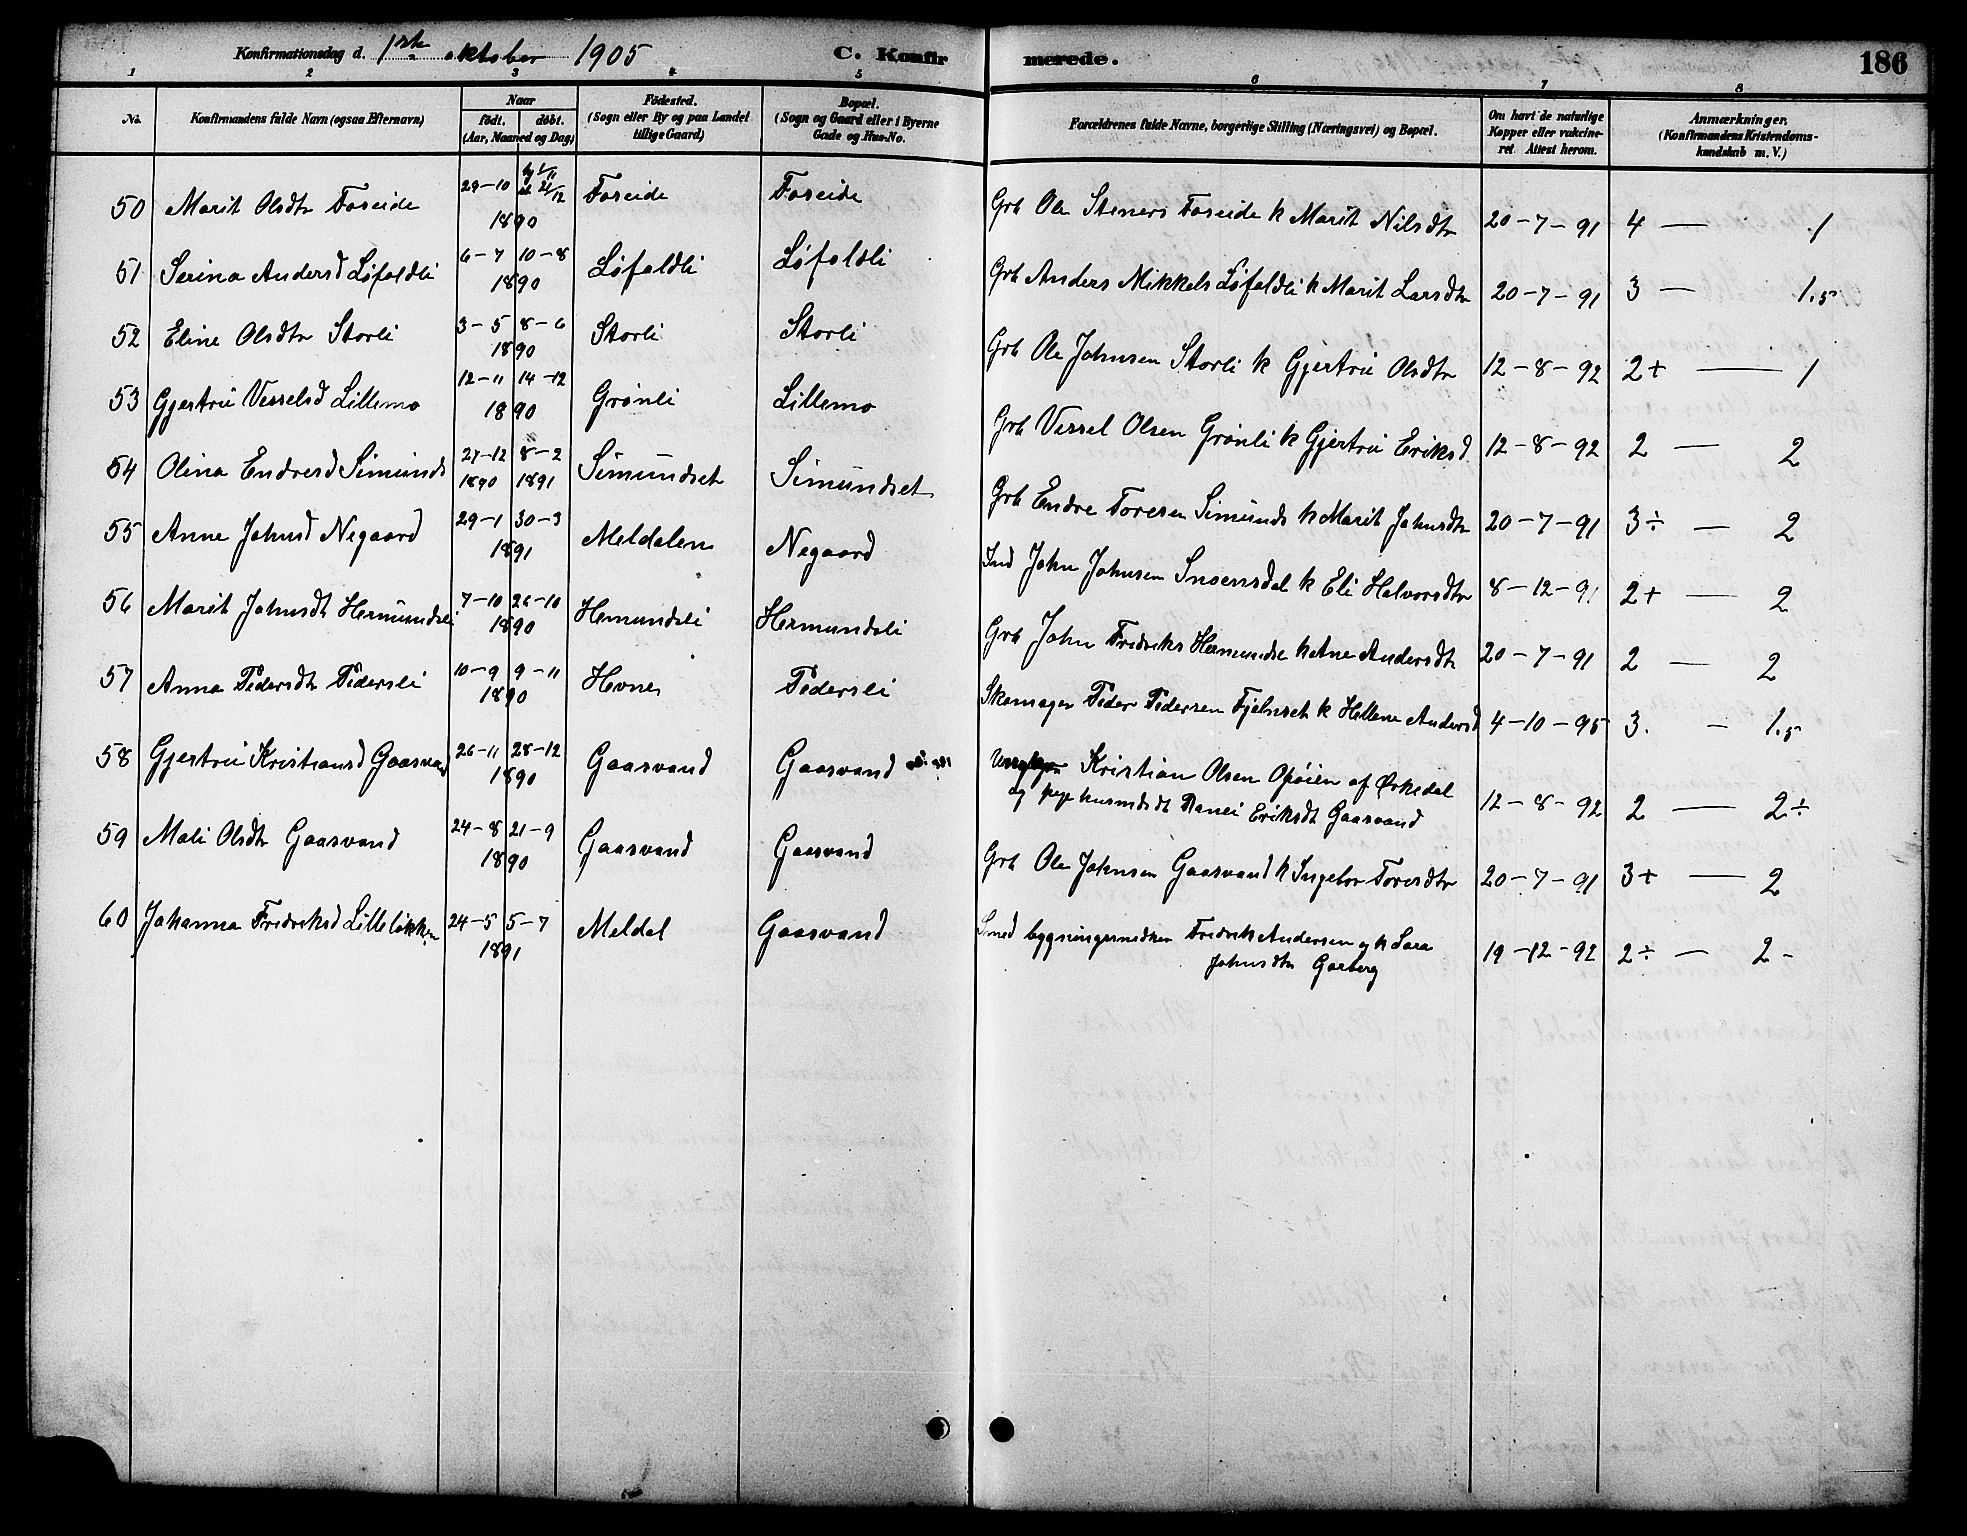 Konfirmationsdag d. 1ste oktober 1905 C. Konfirmerede. 186
1 2 3 4 5 6 7 8
No. Konfirmandens fulde Navn (ogsaa Efternavn) Naar födt. döbt. (Aar, Maaned og Dag) Födested. (Sogn eller By og paa Landet tillige Gaard) Bopæl. (Sogn og Gaard eller i Byerne Gade og Hus-No. Forældrenes fulde Navne, borgerlige Stilling (Næringsvei) og Bopæl. Om havt de naturlige Kopper eller vakcineret Attest herom. Anmærkninger. (Konfirmandens Kristendomskundskab m. V.)
50 Marit Olsdtr Foseide 29-10 1890 21/12 Foseide Foseide Grb Ole Steners Foseide k Marit Nilsdtr 20-7-91 4 — 1
51 Serina Andersd Løfaldli 6-7 10-8 1890 Løfaldli Løfaldli Grb Anders Mikkels Løfaldli k Marit Larsdtr 20-7-91 3 — 1.5
52 Eline Olsdtr Storli 3-5 8-6 1890 Storli Storli Grb Ole Johnsen Storli k Gjertru Olsdtr 12-8-92 2+ — 1
53 Gjertru Vesselsd Lillemo 12-11 14-12 1890 Grønli Lillemo Grb Vessel Olsen Grønli k Gjertru Eriksd 12-8-92 2 — 2
54 Olina Endresd Simunds 27-12 1890 8-2 1891 Simundset Simundset Grb Endre Toresen Simunds k Marit Johnsdtr 20-7-91 3÷ — 2
55 Anne Johnsd Negaard 29-1 30-3 1891 Meldalen Negaard Ind John Johnsen Snoensdal k Eli Halvorsdtr 8-12-91 2+ — 2
56 Marit Johnsdt Hermundsli 7-10 26-10 1890 Hemundsli Hermundsli Grb John Fredriks Hermundse k Ane Andersdt 20-7-91 2 — 2
57 Anna Pedersdtr Pedersli 10-9 9-11 1890 Hevne Pedersli Skomager Peder Pedersen Fjelnset k Hellene Andersd 4-10-95 3. - 1.5
58 Gjertru Kristiansd Gaasvand 26-11 28-12 1890 Gaasvand Gaasvand Kristian Olsen Opøien af Ørkedal
og pige husmdsdt Ranei Eriksdt Gaasvand 12-8-92 2 — 2÷
59 Mali Olsdtr Gaasvand 24-8 21-9 1890 Gaasvand Gaasvand Grb Ole Johnsen Gaasvand k Ingebor Toresdtr 20-7-91 3+ — 2
60 Johanna Fredriksd Lilleløkken 24-5 5-7 1891 Meldal Gaasvand Smed bygningssnedker Fredrik Andersen og k Sara
Johnsdtr Garberg 19-12-92 2÷ — 2-